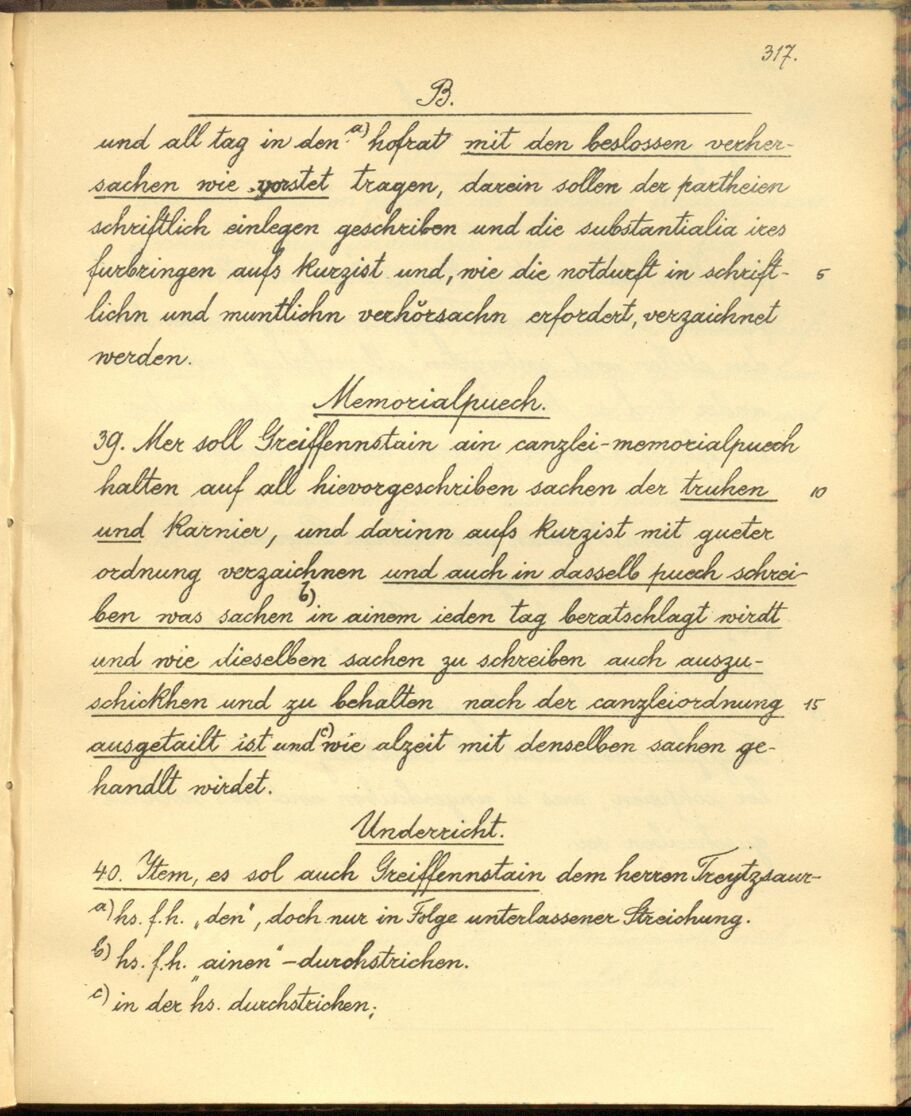 317.
B.
und all tag in den a) hofrat mit den beslossen verher-
sachen wie vorstet tragen, darein sollen der partheien
schriftlich einlegen geschriben und die substantialia ires
furbringen aufs kurzist und, wie die notdurft in schrift- 5
lichn und muntlichn verhörsachn erfordert, verzaichnet
werden.
Memorialpuech.
39. Mer soll Greiffennstain ain canzlei-memorialpuech
halten auf all hievorgeschriben sachen der truhen 10
und karnier, und darinn aufs kurzist mit gueter
ordnung verzaichnen und auch in dasselb puech schrei-
ben was sachen b) in ainem ieden tag beratschlagt wirdt
und wie dieselben sachen zu schreiben auch auszu-
schickhen und zu behalten nach der canzleiordnung 15
ausgetailt ist und c) wie alzeit mit denselben sachen ge-
handlt wirdet.
Underricht.
40. Item, es sol auch Greiffennstain dem herren Treytzsaur-
a) hs. f.h. „den“, doch nur in Folge unterlassener Streichung.
b) hs. f.h. „ainen“ – durchstrichen.
c) in der hs. durchstrichen;